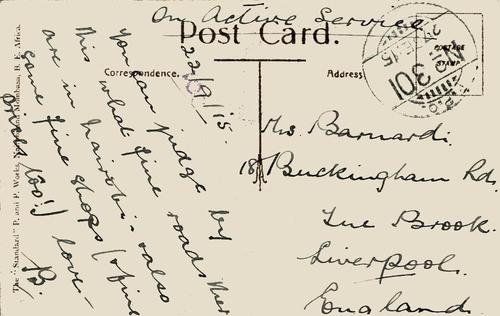 On Active Service
Post Card.
Correspondence.
Address
POSTAGE
STAMP
No 301
22/9/15.
You can judge by
this what fine roads there
are in Nairobi - also
some fine shops (& fine
too!) love -
B.
Mrs Barnard.
18, Buckingham Rd.
Tue Brook.
Liverpool.
England.
The "Standard" P. and P. Works, Nairobi and Mombasa, B. E. Africa.